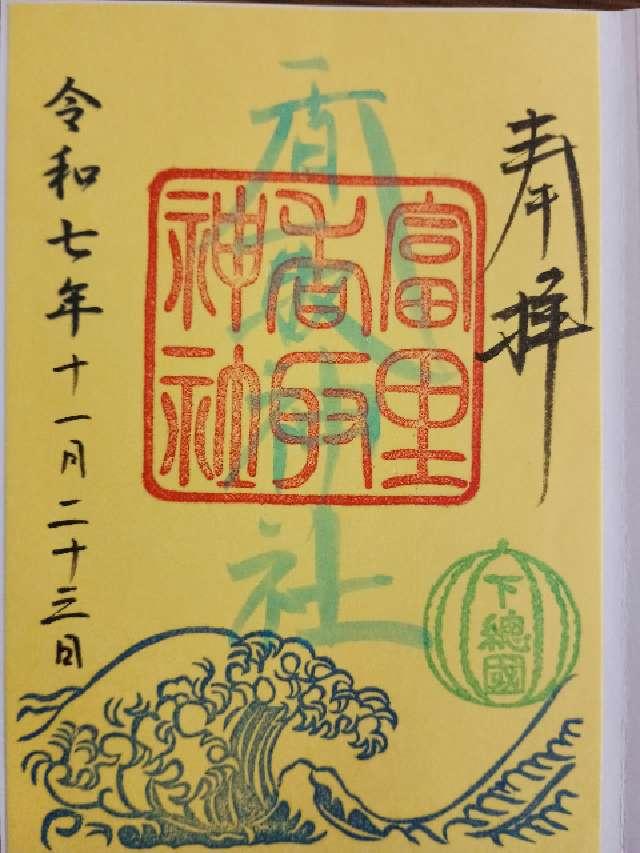 奉拝
香取神社
富里
香取
神社
下總國
令和七年十一月二十三日